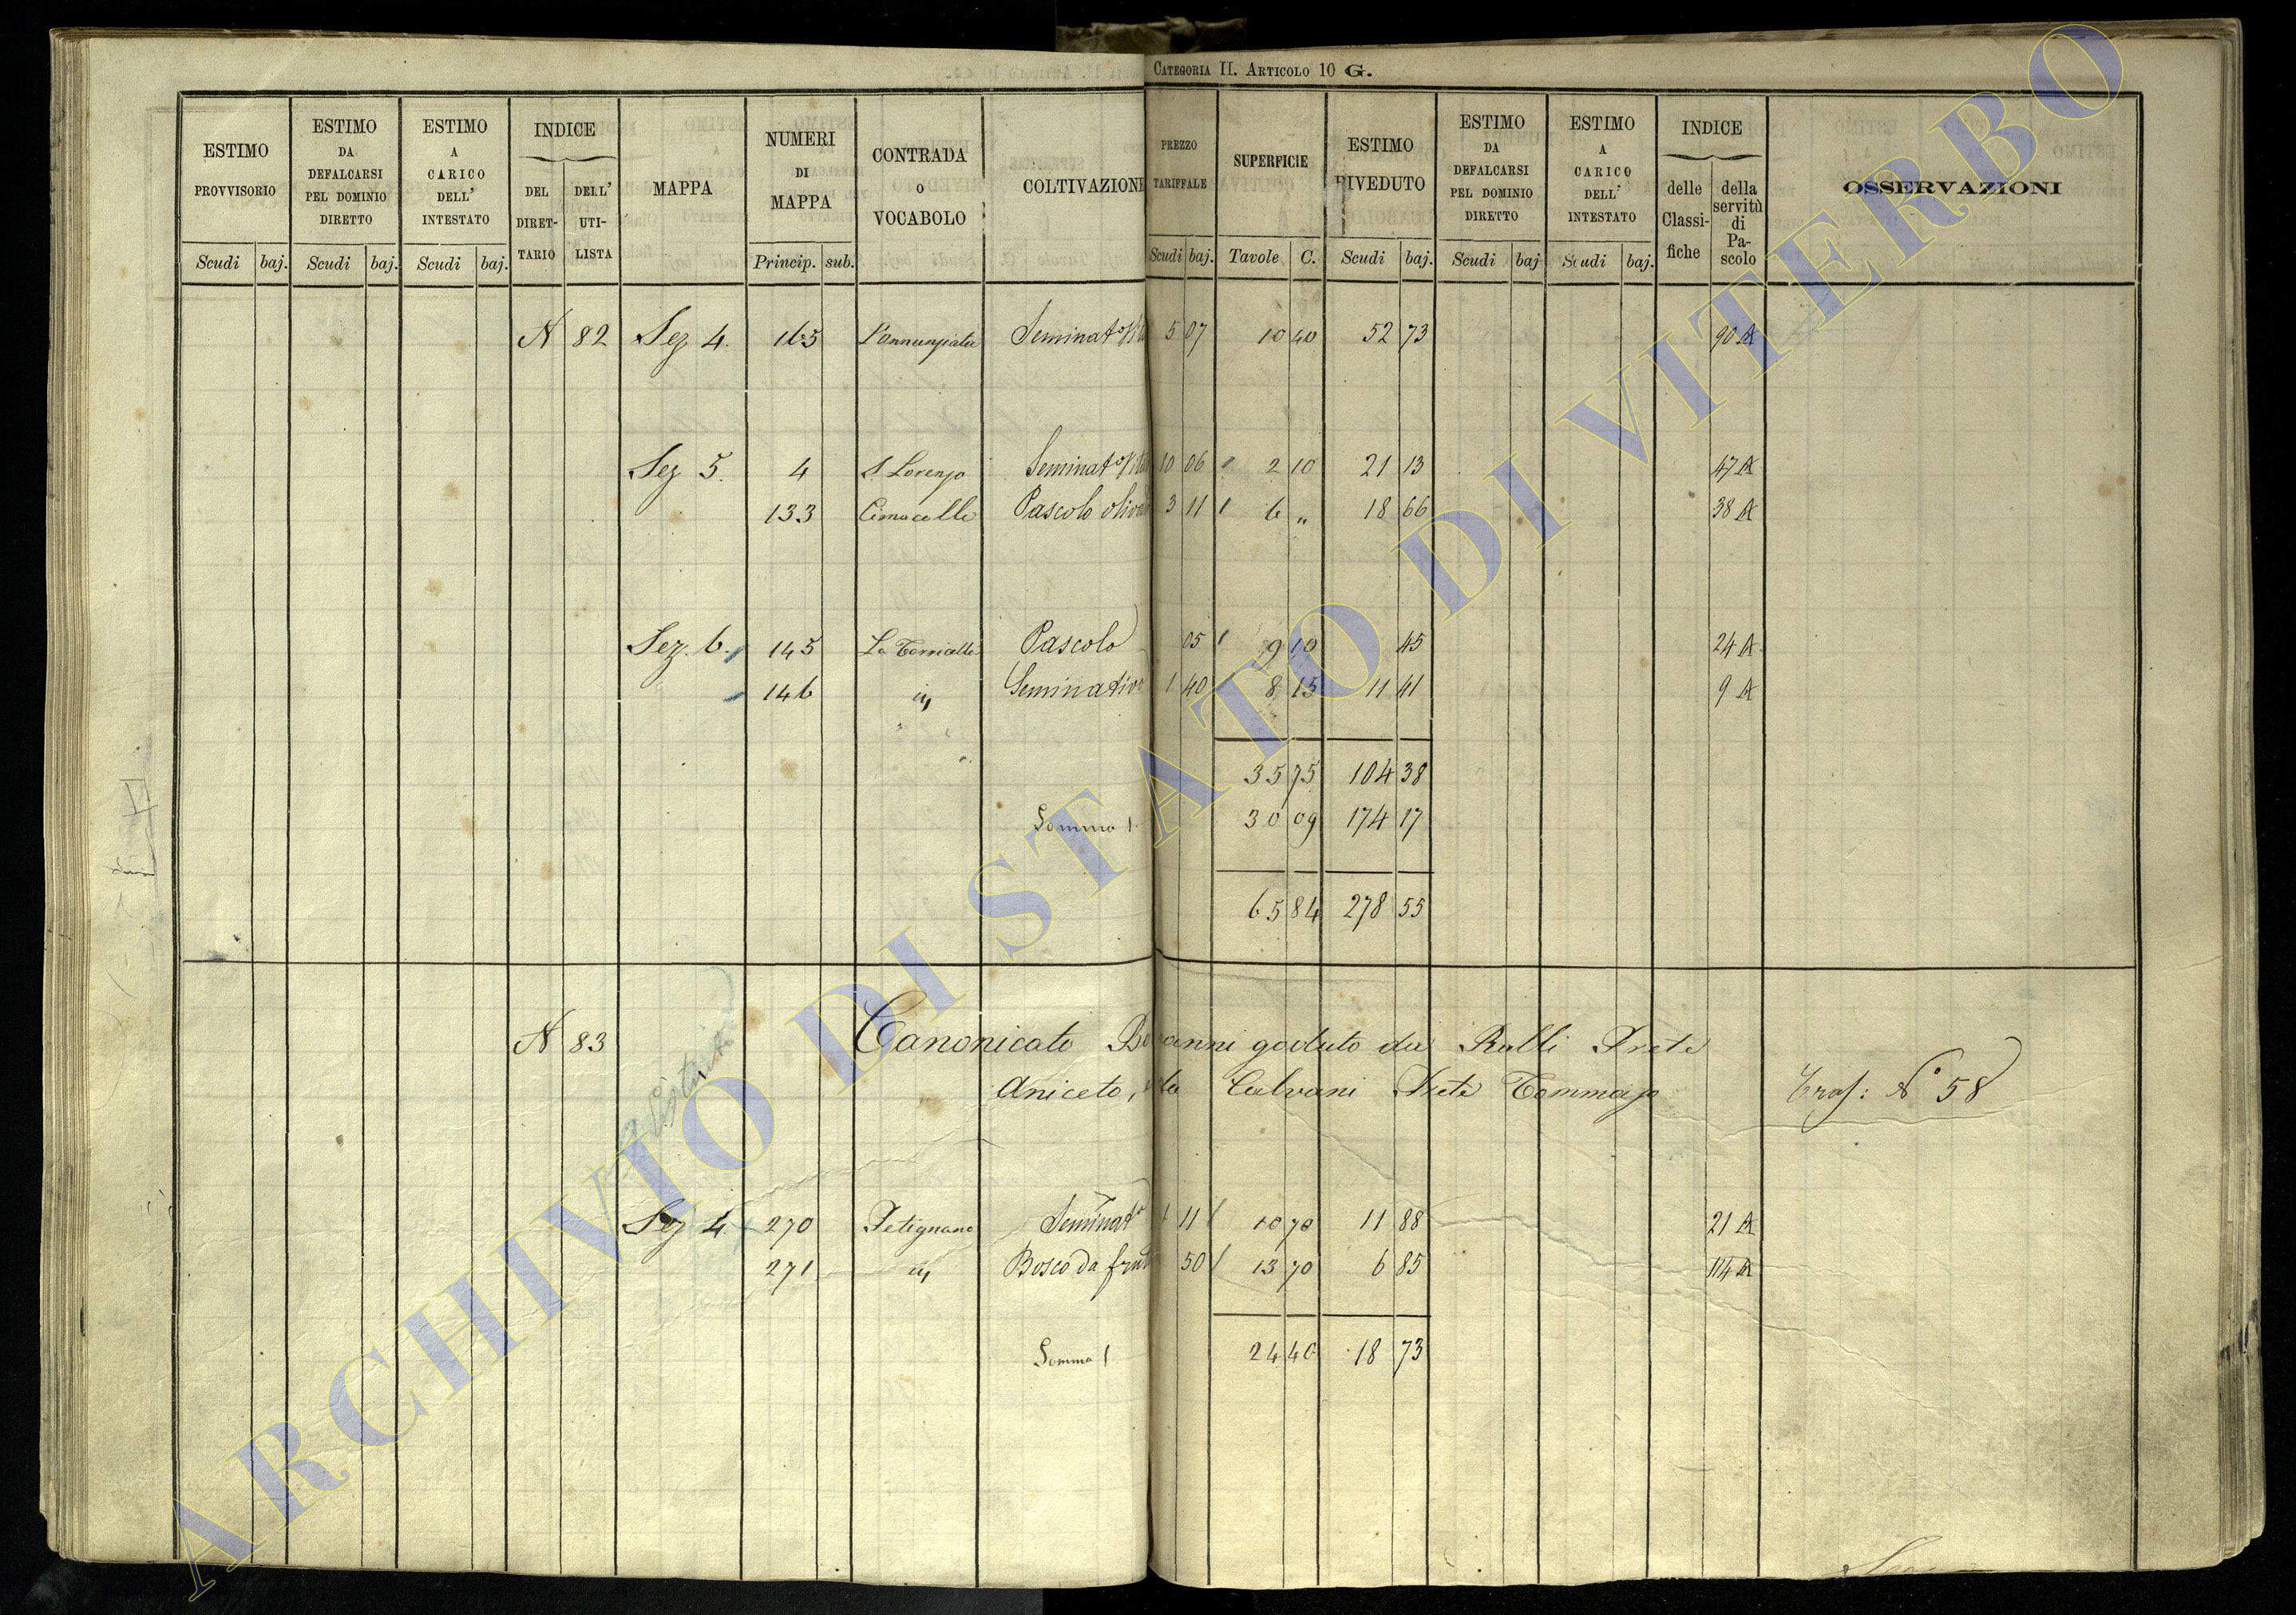 CATEGORIA II. ARTICOLO 10 G.
ESTIMO PROVVISORIO Scudi baj.
ESTIMO DA DEFALCARSI PEL DOMINIO DIRETTO Scudi baj.
ESTIMO A CARICO DELL' INTESTATO Scudi baj.
INDICE DEL DIRET-TARIO DELL' UTI-LISTA
MAPPA
NUMERI DI MAPPA Princip. sub.
CONTRADA O VOCABOLO
COLTIVAZIONE
PREZZO TARIFFALE Scudi baj.
SUPERFICIE Tavole C.
ESTIMO RIVEDUTO Scudi baj.
ESTIMO DA DEFALCARSI PEL DOMINIO DIRETTO Scudi baj
ESTIMO A CARICO DELL' INTESTATO Scudi baj.
INDICE delle Classi-fiche della servitù di Pa-scolo
OSSERVAZIONI
N 82 Sez 4. 165 l'Annunziata Seminat° 5 07 10 40 52 73 90 A
Sez 5. 4 S. Lorenzo Seminat° 10 06 2 10 21 13 47 A
133 Cimacolle Pascolo 3 11 6 „ 18 66 38 A
Sez. 6. 145 La Torricella Pascolo 05 9 10 45 24 A
146 „ Seminativo 1 40 8 15 11 41 9 A
35 75 104 38
Somma 30 09 174 17
65 84 278 55
N 83 Canonicato goduto da Ralli Prete
Aniceto, Calvani Prete Tommaso Tras: N° 58
Sez 4. 270 Petignano Seminat° 1 11 10 70 11 88 21 A
271 „ Bosco da 50 13 70 6 85 114 A
Somma 24 40 18 73
ARCHIVIO DI STATO DI VITERBO